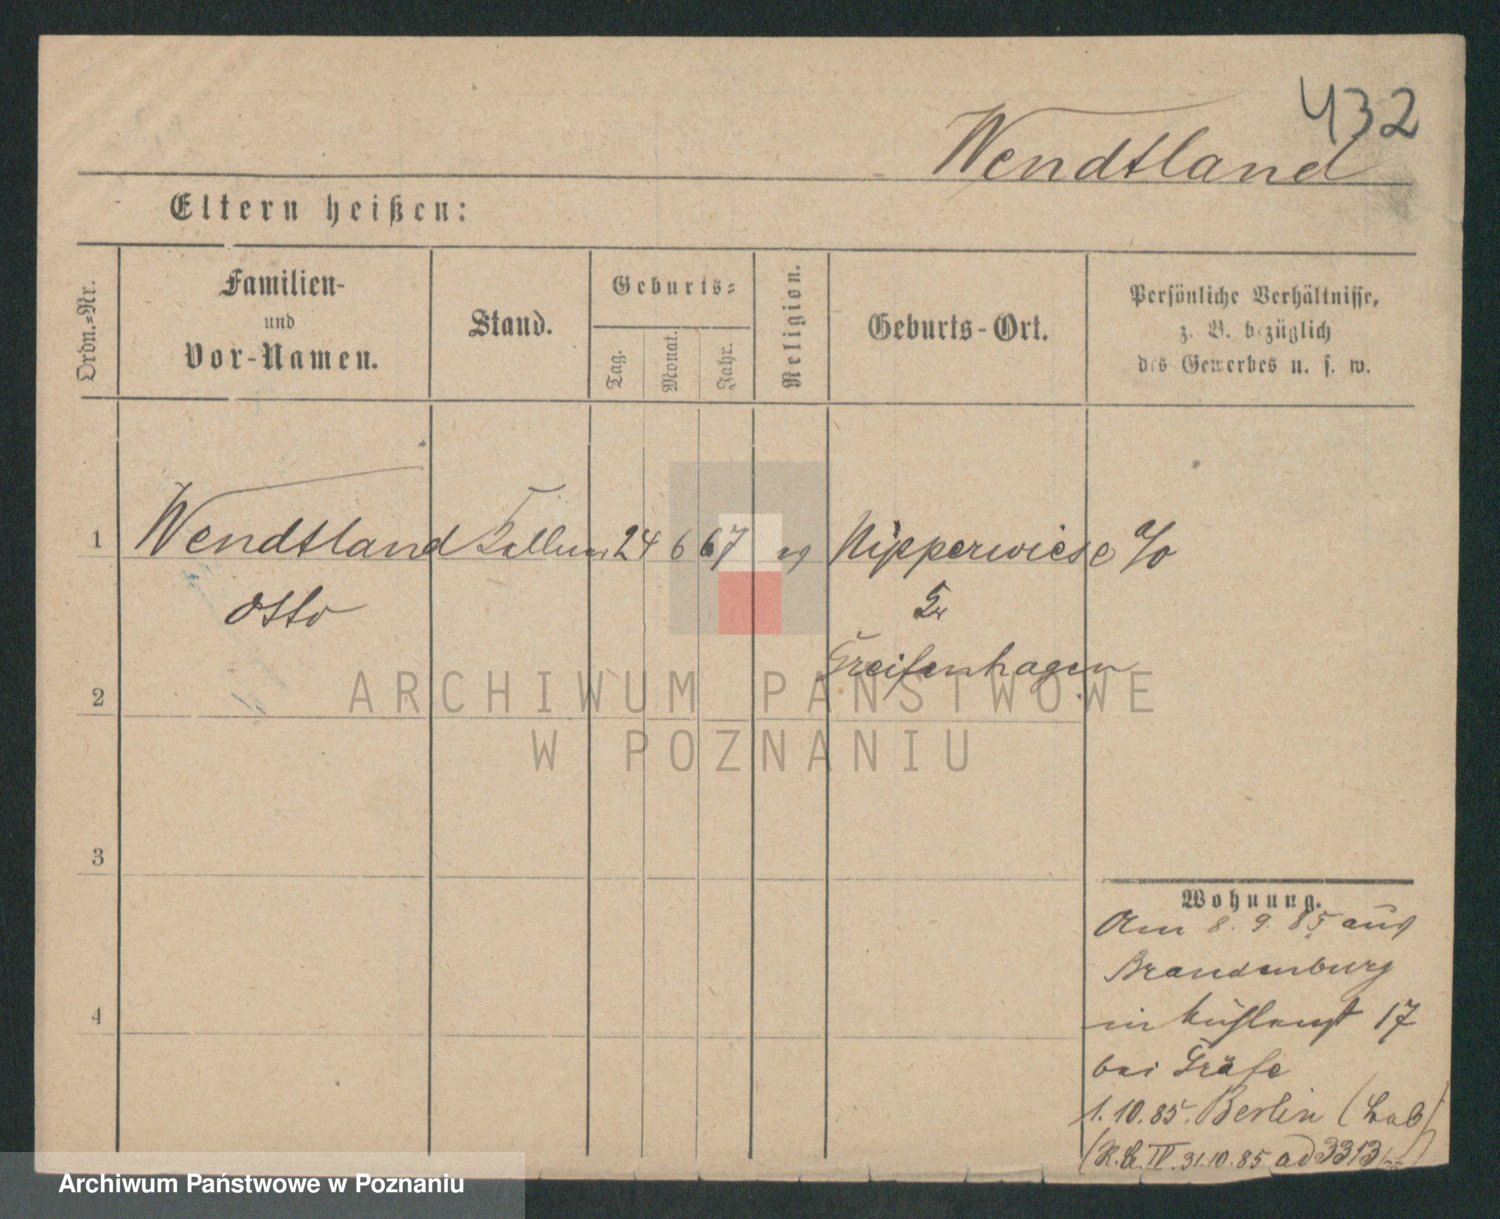 432
Wendtland
Eltern heißen:
Ordn.=Nr.
Familien-
und
Vor-Namen.
Stand.
Geburts=
Tag.
Monat.
Jahr.
Religion.
Geburts-Ort.
Persönliche Verhältnisse,
z. B. bezüglich
des Gewerbes u. s. w.
1 Wendtland Kellner 24 6 67 Nipperwiese a/o
Otto
Kr
Greifenhagen
2
ARCHIWUM PAŃSTWOWE
W POZNANIU
3
Wohnung.
Am 8. 9. 85 aus
Brandenburg
in 17
bei Gräfe
4
1. 10. 85. Berlin
31.10.85 ad 3313
Archiwum Państwowe w Poznaniu